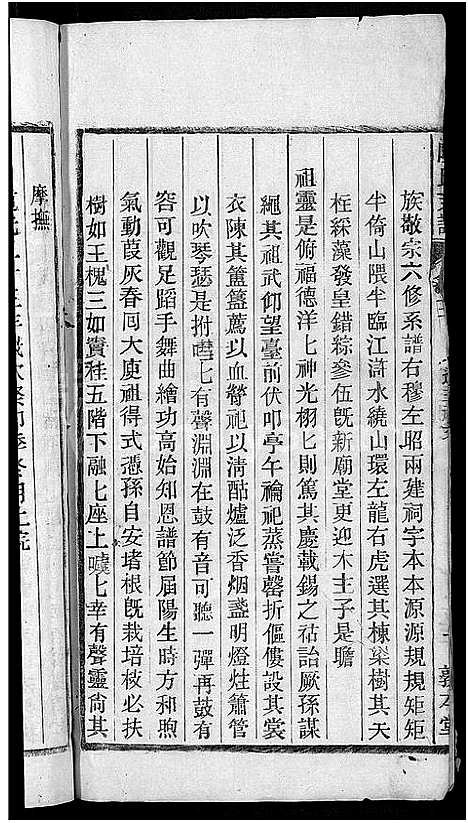 族敬宗六修系譜右穆左昭兩建祠宇本本源源規規矩矩
半倚山隈半臨江滸水繞山環左龍右虎選其棟梁樹其天
枉綵藻發皇錯粽參伍旣新廟堂更迎木主子是瞻
祖靈是俯福德洋七神光栩七則篤其慶載錫之祜詒厥孫謀
繩其祖武仰望臺前伏叩亭午禴祀蒸嘗罄折傴僂設其裳
衣陳其簠簋薦以血膋祀以淸酤爐泛香烟盞明燈炷簫管
以吹琴瑟是拊嘒七有聲淵淵在鼓有音可聽一彈再鼓有
容可觀足蹈手舞曲繪功高始知恩譜節届陽生時方和煦
氣動葭灰春囘大庾祖得式憑孫自安堵根旣栽培枝必扶
樹如王槐三如竇桂五階下融七座上噳七幸有聲靈尙其
摩撫
敦本堂